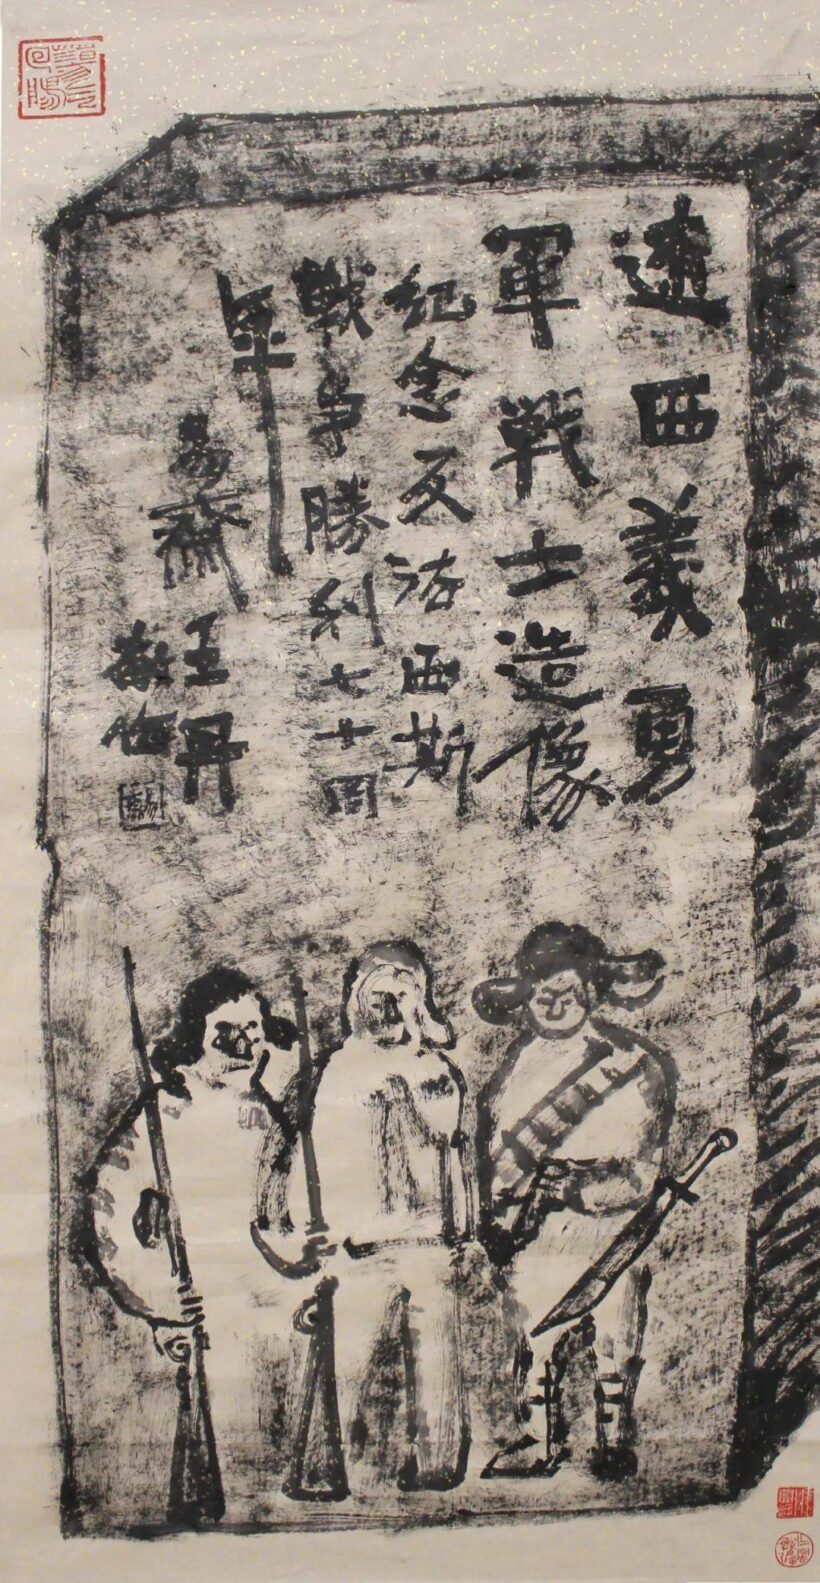 遼西義勇
軍戦士造像
紀念反法西斯
戦争勝利七十周
年
易齋
王丹
敬作